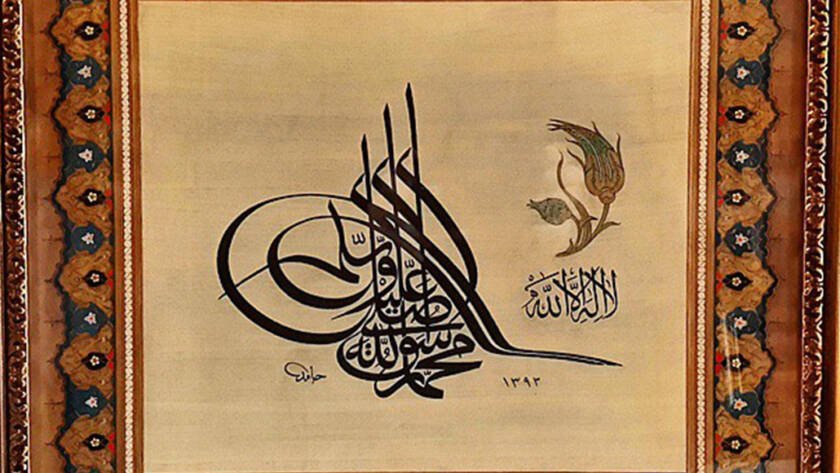 لا اله الا الله
محمد رسول الله صلى الله عليه وسلم
١٣٩٣
حامد